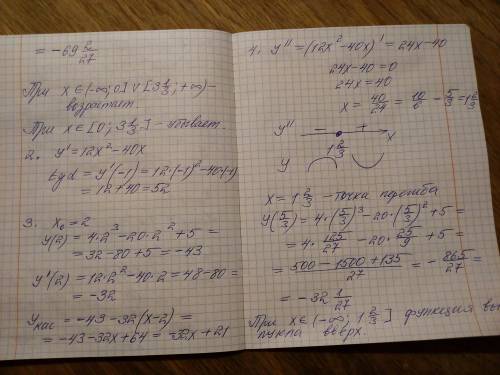 = -69 2/27
При x ∈ (-∞; 0] ∨ [3 1/3; +∞) -
возрастает.
При x ∈ [0; 3 1/3] - убывает.
2. y' = 12x² - 40x
tg α = y'(-1) = 12·(-1)² - 40·(-1)
= 12 + 40 = 52
3. x₀ = 2
y(2) = 4·2³ - 20·2² + 5 =
= 32 - 80 + 5 = -43
y'(2) = 12·2² - 40·2 = 48 - 80 =
= -32
y кас = -43 - 32(x-2) =
= -43 - 32x + 64 = -32x + 21
4. y'' = (12x² - 40x)' = 24x - 40
24x - 40 = 0
24x = 40
x = 40/24 = 10/6 = 5/3 = 1 2/3
y'' - + x
1 2/3
y
x = 1 2/3 - точка перегиба
y(5/3) = 4·(5/3)³ - 20·(5/3)² + 5 =
= 4·125/27 - 20·25/9 + 5 =
= (500 - 1500 + 135)/27 = -865/27 =
= -32 1/27
При x ∈ (-∞; 1 2/3] функция вы-
пукла вверх.